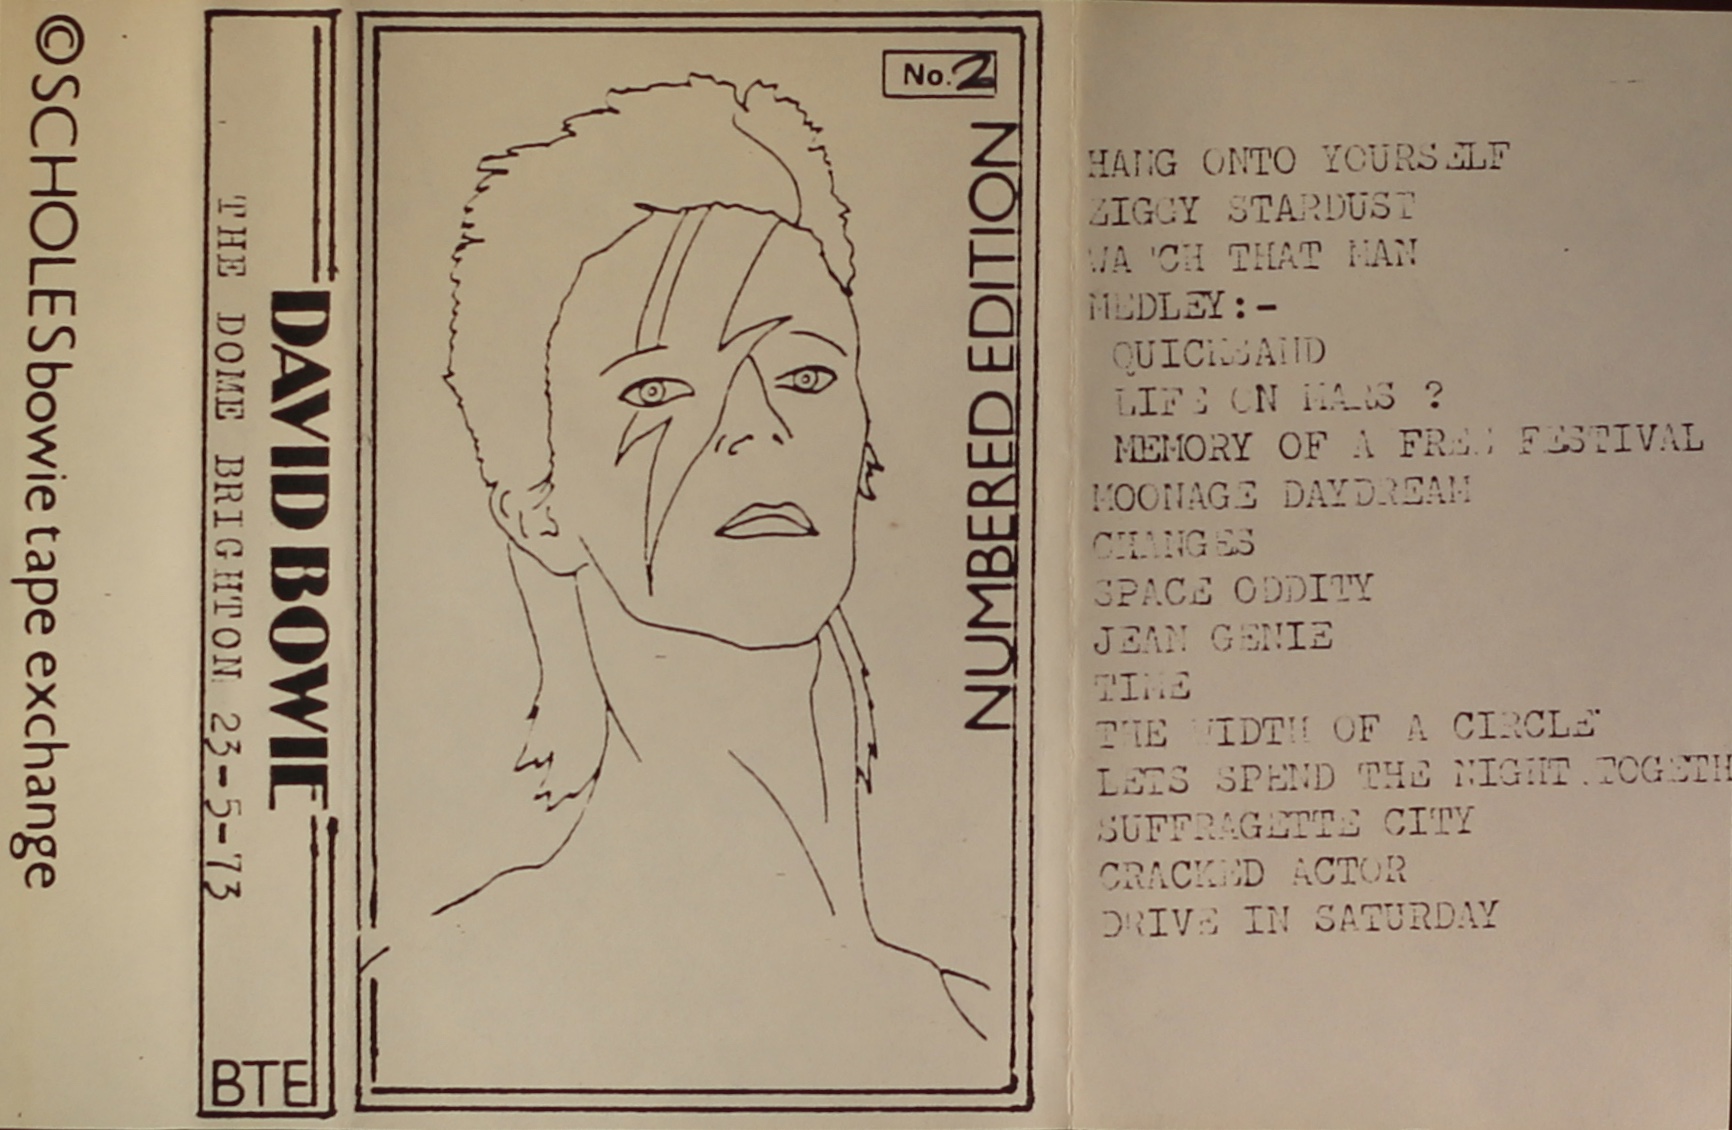 ©SCHOLESbowie tape exchange
DAVID BOWIE
THE DOME BRIGHTON 23-5-73
BTE
No.2
NUMBERED EDITION
HANG ONTO YOURSELF
ZIGGY STARDUST
WATCH THAT MAN
MEDLEY:-
QUICKSAND
LIFE ON MARS ?
MEMORY OF A FREE FESTIVAL
MOONAGE DAYDREAM
CHANGES
SPACE ODDITY
JEAN GENIE
TIME
THE WIDTH OF A CIRCLE
LETS SPEND THE NIGHT.TOGETH
SUFFRAGETTE CITY
CRACKED ACTOR
DRIVE IN SATURDAY